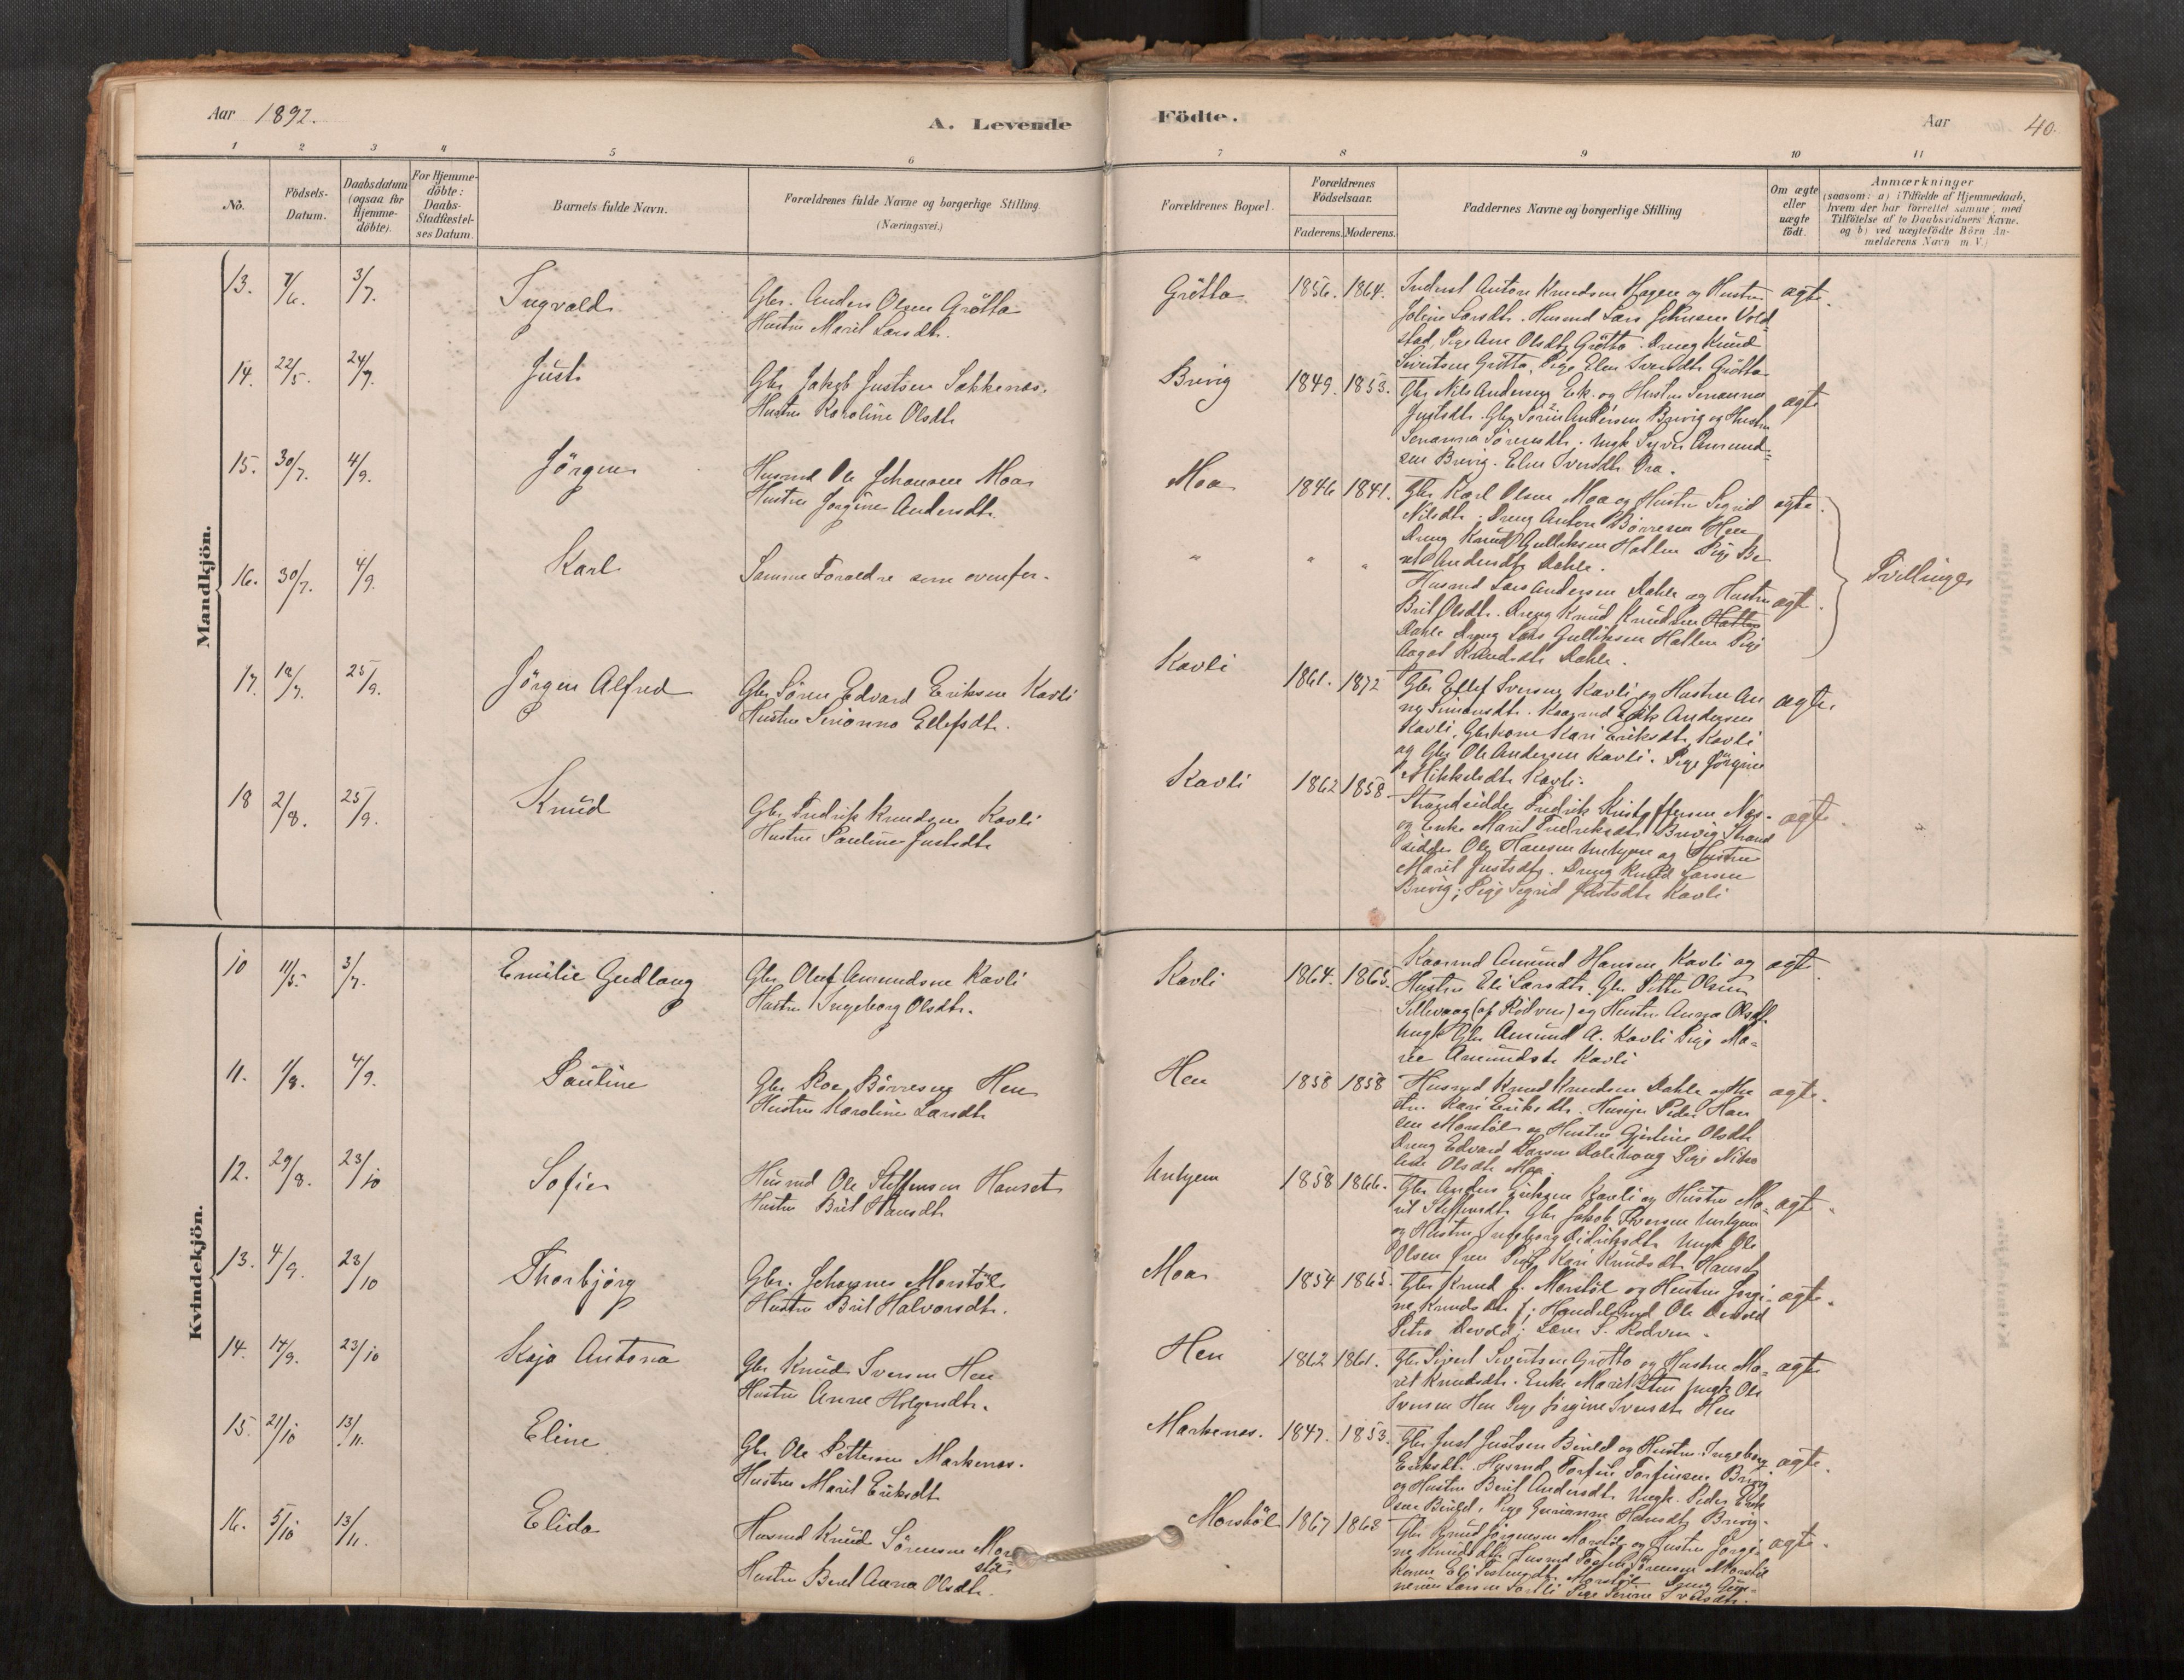 Aar 1892.
A. Levende
Födte.
Aar
40.
1 2 3 4 5 6 7 8 9 10 11
No.
Födsels-
Datum.
Daabsdatum
(ogsaa for
Hjemme-
döbte).
For Hjemme-
döbte:
Daabs-
Stadfæstel-
ses Datum.
Barnets fulde Navn.
Forældrenes fulde Navne og borgerlige Stilling
(Næringsvei.)
Forældrenes Bopæl.
Forældrenes
Födselsaar.
Faderens. Moderens.
Faddernes Navne og borgerlige Stilling
Om ægte
eller
uægte
födt.
Anmærkninger
(saasom: a) i Tilfælde af Hjemmedaab,
hvem der har forrettet samme, med
Tilföielse af to Daabsvidners Navne.
og b) ved uægtefödte Börn An-
melderens Navn m. V.)
Mandkjön.
13. 7/6. 3/7. Ingvald Gbr. Anders Olsen Grötta
Hustru Marit Larsdt.
Grötta 1856. 1864.
Inderst Anton Knudsen Hagen og Hustru
Larsdt. Husmd Lars Johnsen Vold-
stad, Pige Ane Olsdt Grötta. Dreng Knud
Sivertsen Grötta, Pige Elen Grötta
ægte.
14. 22/5. 24/7. Just Gbr Jakob Justsen Sækkenes.
Hustru Karoline Olsdt
Brevig 1849. 1853.
Gbr Nils Andersen Eik. og Hustru
Justsdt. Gbr Sören Andersen Brevig og Hustru
Sörensdt. Ungk Syver Amund-
sen Brevig. Elen Iversdt
ægte
15. 30/7. 4/9. Jörgen Husmd Ole Johansen Moa
Hustru Jörgine Andersdt.
Moa 1846 1841.
Gbr Karl Olsen Moa og Hustru Sigrid
Nilsdt. Dreng Anton Börresen Hen
Dreng Knud Gulliksen Hatlen Pige Be-
rit Andersdt Dahle.
ægte.
16. 30/7. 4/9. Karl Samme Forældre som ovenfor.
" " "
Husmd Lars Andersen Dahle og Hustru
Brit Olsdt. Dreng Knud Knudsen Hatlen
Dahle Dreng Lars Gulliksen Hatlen Pige
Aagot Knudsdt Dahle.
ægte.
Tvillinger
17. 18/7. 25/9. Jörgen Alfred Gbr Sören Edvard Eriksen Kavli
Hustru Serianna Ellefsdt.
Kavli 1861. 1872
Gbr Ellef Iversen Kavli og Hustru An-
ne Simonsdt. Kaarmd Erik Andersen
Kavli, Gbrkone Kari Eriksdt Kavli
og Gbr Ole Andersen Kavli. Pige Jörgine
Mikkelsdt Kavli.
ægte.
18 2/8. 25/9. Knud Gbr Fredrik Knudsen Kavli
Hustru Pauline Justsdt
Kavli 1862 1858
Strandsidder Fredrik Kristoffersen Næs
og Enke Marit Fredriksdt Brevig, Strand
sidder Ole Hansen Unhjem og Hustru
Marit Justsdt. Dreng Knud Larsen
Brevig; Pige Sigrid Justsdt Kavli
ægte.
Kvindekjön.
10 11/5. 3/7. Emilie Gudlaug Gbr Oluf Amundsen Kavli
Hustru Ingeborg Olsdt.
Kavli 1864. 1865.
Kaarmd Amund Hansen Kavli og
Hustru Eli Larsdt. Gbr Petter Olsen
Sellevaag (af Rödven) og Hustru Anna Olsdt
Ungk Gbr Amund A. Kavli Pige Ma-
rie Amundsdt Kavli
ægte.
11. 1/8. 4/9. Pauline Gbr Roe Börresen Hen
Hustru Karoline Larsdt
Hen 1858 1858
Husmd Knud Knudsen Dahle og Hu-
stru Kari Eriksdt. Peder Han
sen Morstöl og Hustru Gjertine Olsdt
Dreng Edvard Larsen Dalehaug Pige Niko
line Olsdt Moa.
ægte.
12. 29/8. 23/10 Sofie Husmd Ole Steffensen Hanset
Hustru Brit Hansdt
Unhjem 1858 1866.
Gbr Anders Kavli og Hustru Ma-
rit Steffensdt Gbr Jakob Iversen Unhjem
og Hustru Ingeborg Didriksdt Ungk Ole
Olsen Pige Kari Knudsdt Hanset
ægte.
13. 4/9. 23/10 Thorbjörg Gbr. Johannes Morstöl
Hustru Brit Halvorsdt.
Moa 1854 1865.
Gbr Knud J. Morstöl og Hustru Jörgi-
ne Knudsdt; Handelsmd Ole Devold
Petra Devold; Lærer S. Rödven.
ægte.
14. 14/9. 23/10 Kaja Antona Gbr Knud Iversen Hen
Hustru Anne Holgersdt.
Hen 1862 1861.
Gbr Sivert Sivertsen Grötta og Hustru Ma-
rit Knudsdt. Enke Marit Hen Ungk Ole
Iversen Hen Pige Jörgine Iversdt Hen
ægte
15. 21/10 13/11. Eline Gbr Ole Pettersen Markenes.
Hustru Marit Eriksdt
Markenes. 1847. 1853.
Gbr Just Justsen Bivild og Hustru Ingeborg
Eriksdt. Husmd Torfin Torfinsen Brevig
og Hustru Berit Andersdt Ungk. Peder Erik
sen Bivild, Pige Gurianna Hansdt Brevig.
ægte.
16. 5/10 13/11. Elida Husmd Knud Sörensen Mor
stöl
Hustru Berit Anna Olsdt.
Morstöl 1867 1868
Gbr Knud Jörgensen Morstöl og Hustru Jörgi-
ne Knudsdt. Husmd Sörensen Morstöl
Kone Eli Morstöl Dreng
Larsen Pige Iversdt.
ægte.